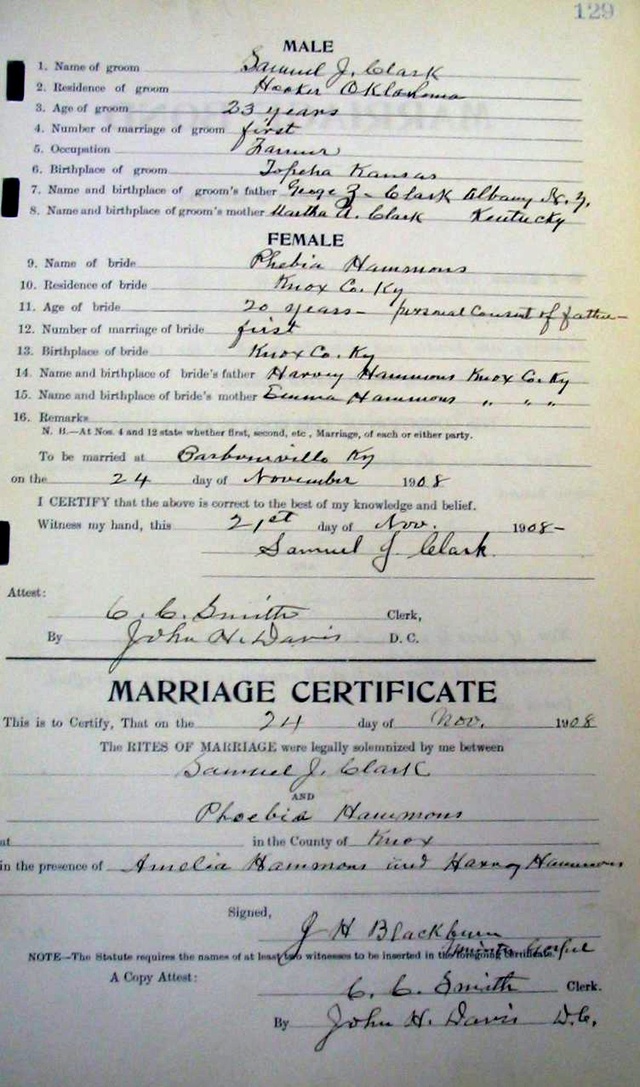 129
MALE
1. Name of groom Samuel J. Clark
2. Residence of groom Hooker Oklahoma
3. Age of groom 23 years
4. Number of marriage of groom first
5. Occupation Farmer
6. Birthplace of groom Topeka Kansas
7. Name and birthplace of groom's father George Z. Clark Albany N. Y.
8. Name and birthplace of groom's mother Martha A. Clark Kentucky
FEMALE
9. Name of bride Phebia Hammons
10. Residence of bride Knox Co. Ky
11. Age of bride 20 years - personal consent of father -
12. Number of marriage of bride first
13. Birthplace of bride Knox Co. Ky
14. Name and birthplace of bride's father Harvey Hammons Knox Co. Ky
15. Name and birthplace of bride's mother Emma Hammons " " "
16. Remarks
N. B.—At Nos. 4 and 12 state whether first, second, etc., Marriage, of each or either party.
To be married at Barbourville Ky
on the 24 day of November 1908
I CERTIFY that the above is correct to the best of my knowledge and belief.
Witness my hand, this 21st day of Nov. 1908-
Samuel J. Clark
Attest:
C. C. Smith Clerk,
By John H. Davis D. C.
MARRIAGE CERTIFICATE
This is to Certify, That on the 24 day of Nov. 1908
The RITES OF MARRIAGE were legally solemnized by me between
Samuel J. Clark
AND
Phoebia Hammons
at in the County of Knox
in the presence of Amelia Hammons and Harvey Hammons
Signed,
J H Blackburn
NOTE—The Statute requires the names of at least two witnesses to be inserted in the foregoing certificate.
A Copy Attest:
C. C. Smith Clerk.
By John H. Davis D.C.